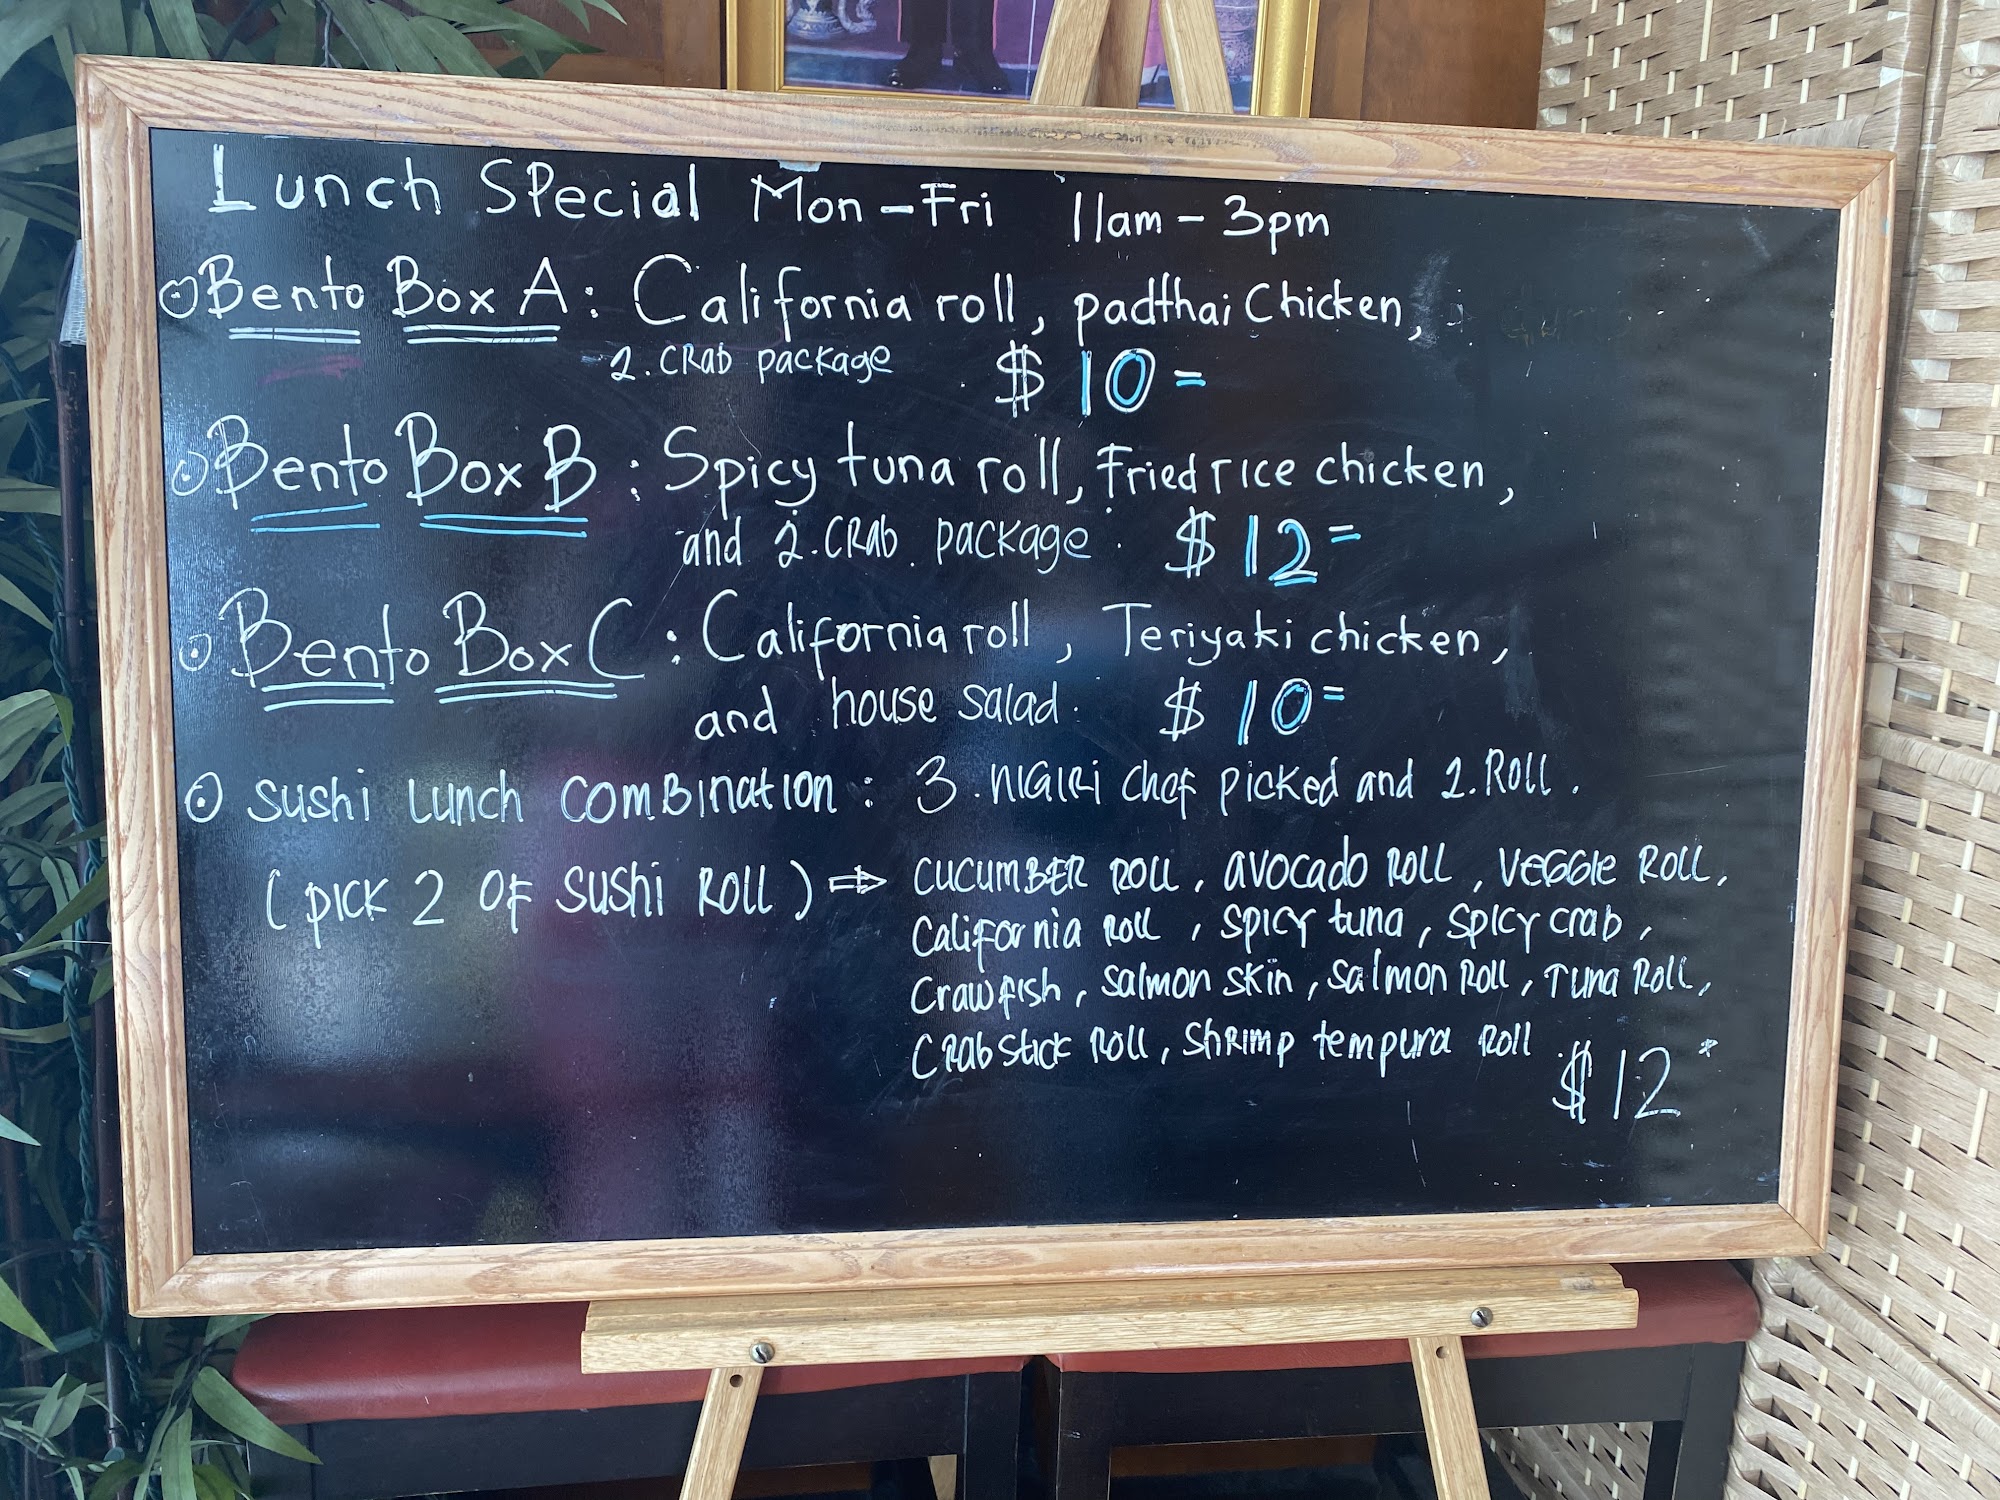 Lunch Special Mon-Fri 11am - 3pm
Bento Box A: California roll, padthai Chicken,
2. CRab package $10=
Bento Box B: Spicy tuna roll, Fried rice chicken,
and 2. CRab. package. $12=
Bento Box C: California roll, Teriyaki chicken,
and house salad. $10=
Sushi Lunch Combination: 3. NIGIRI Chef picked and 2. Roll.
(pick 2 of Sushi Roll) ⇨ CUCUMBER ROLL, avocado ROLL, VEGGIE ROLL,
California Roll, Spicy tuna, Spicy crab,
Crawfish, Salmon Skin, Salmon Roll, Tuna Roll,
CRab Stick Roll, Shrimp tempura Roll
$12